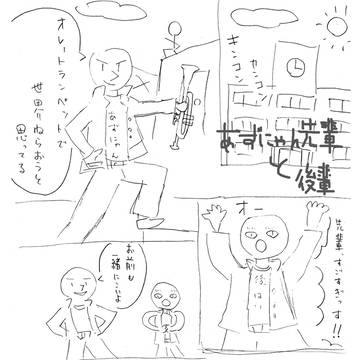 キンコン
カンコン
あずにゃん先輩
と後輩
オレートランペットで
世界ねらおうと
思ってる
あずにゃん
オー
先輩すごすぎっす!!
後はい
お前も
一緒にこいよ